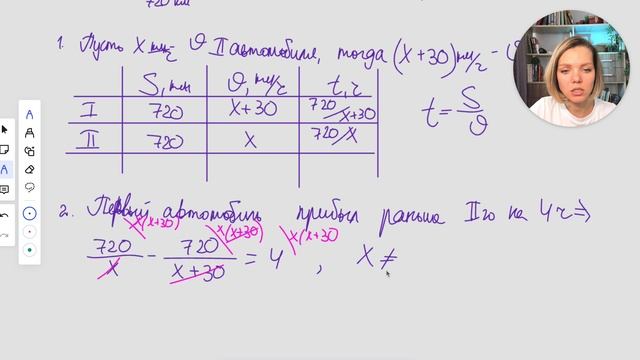 720 км
1. Пусть x км/ч - υ II автомобиля, тогда (x+30) км/ч - υ
S, км υ, км/ч t, ч
I 720 x+30 720/x+30
II 720 x 720/x
t = S/υ
2. Первый автомобиль прибыл раньше IIго на 4 ч ⇒
x(x+30) x(x+30) x(x+30
720/x - 720/x+30 = 4 , x ≠